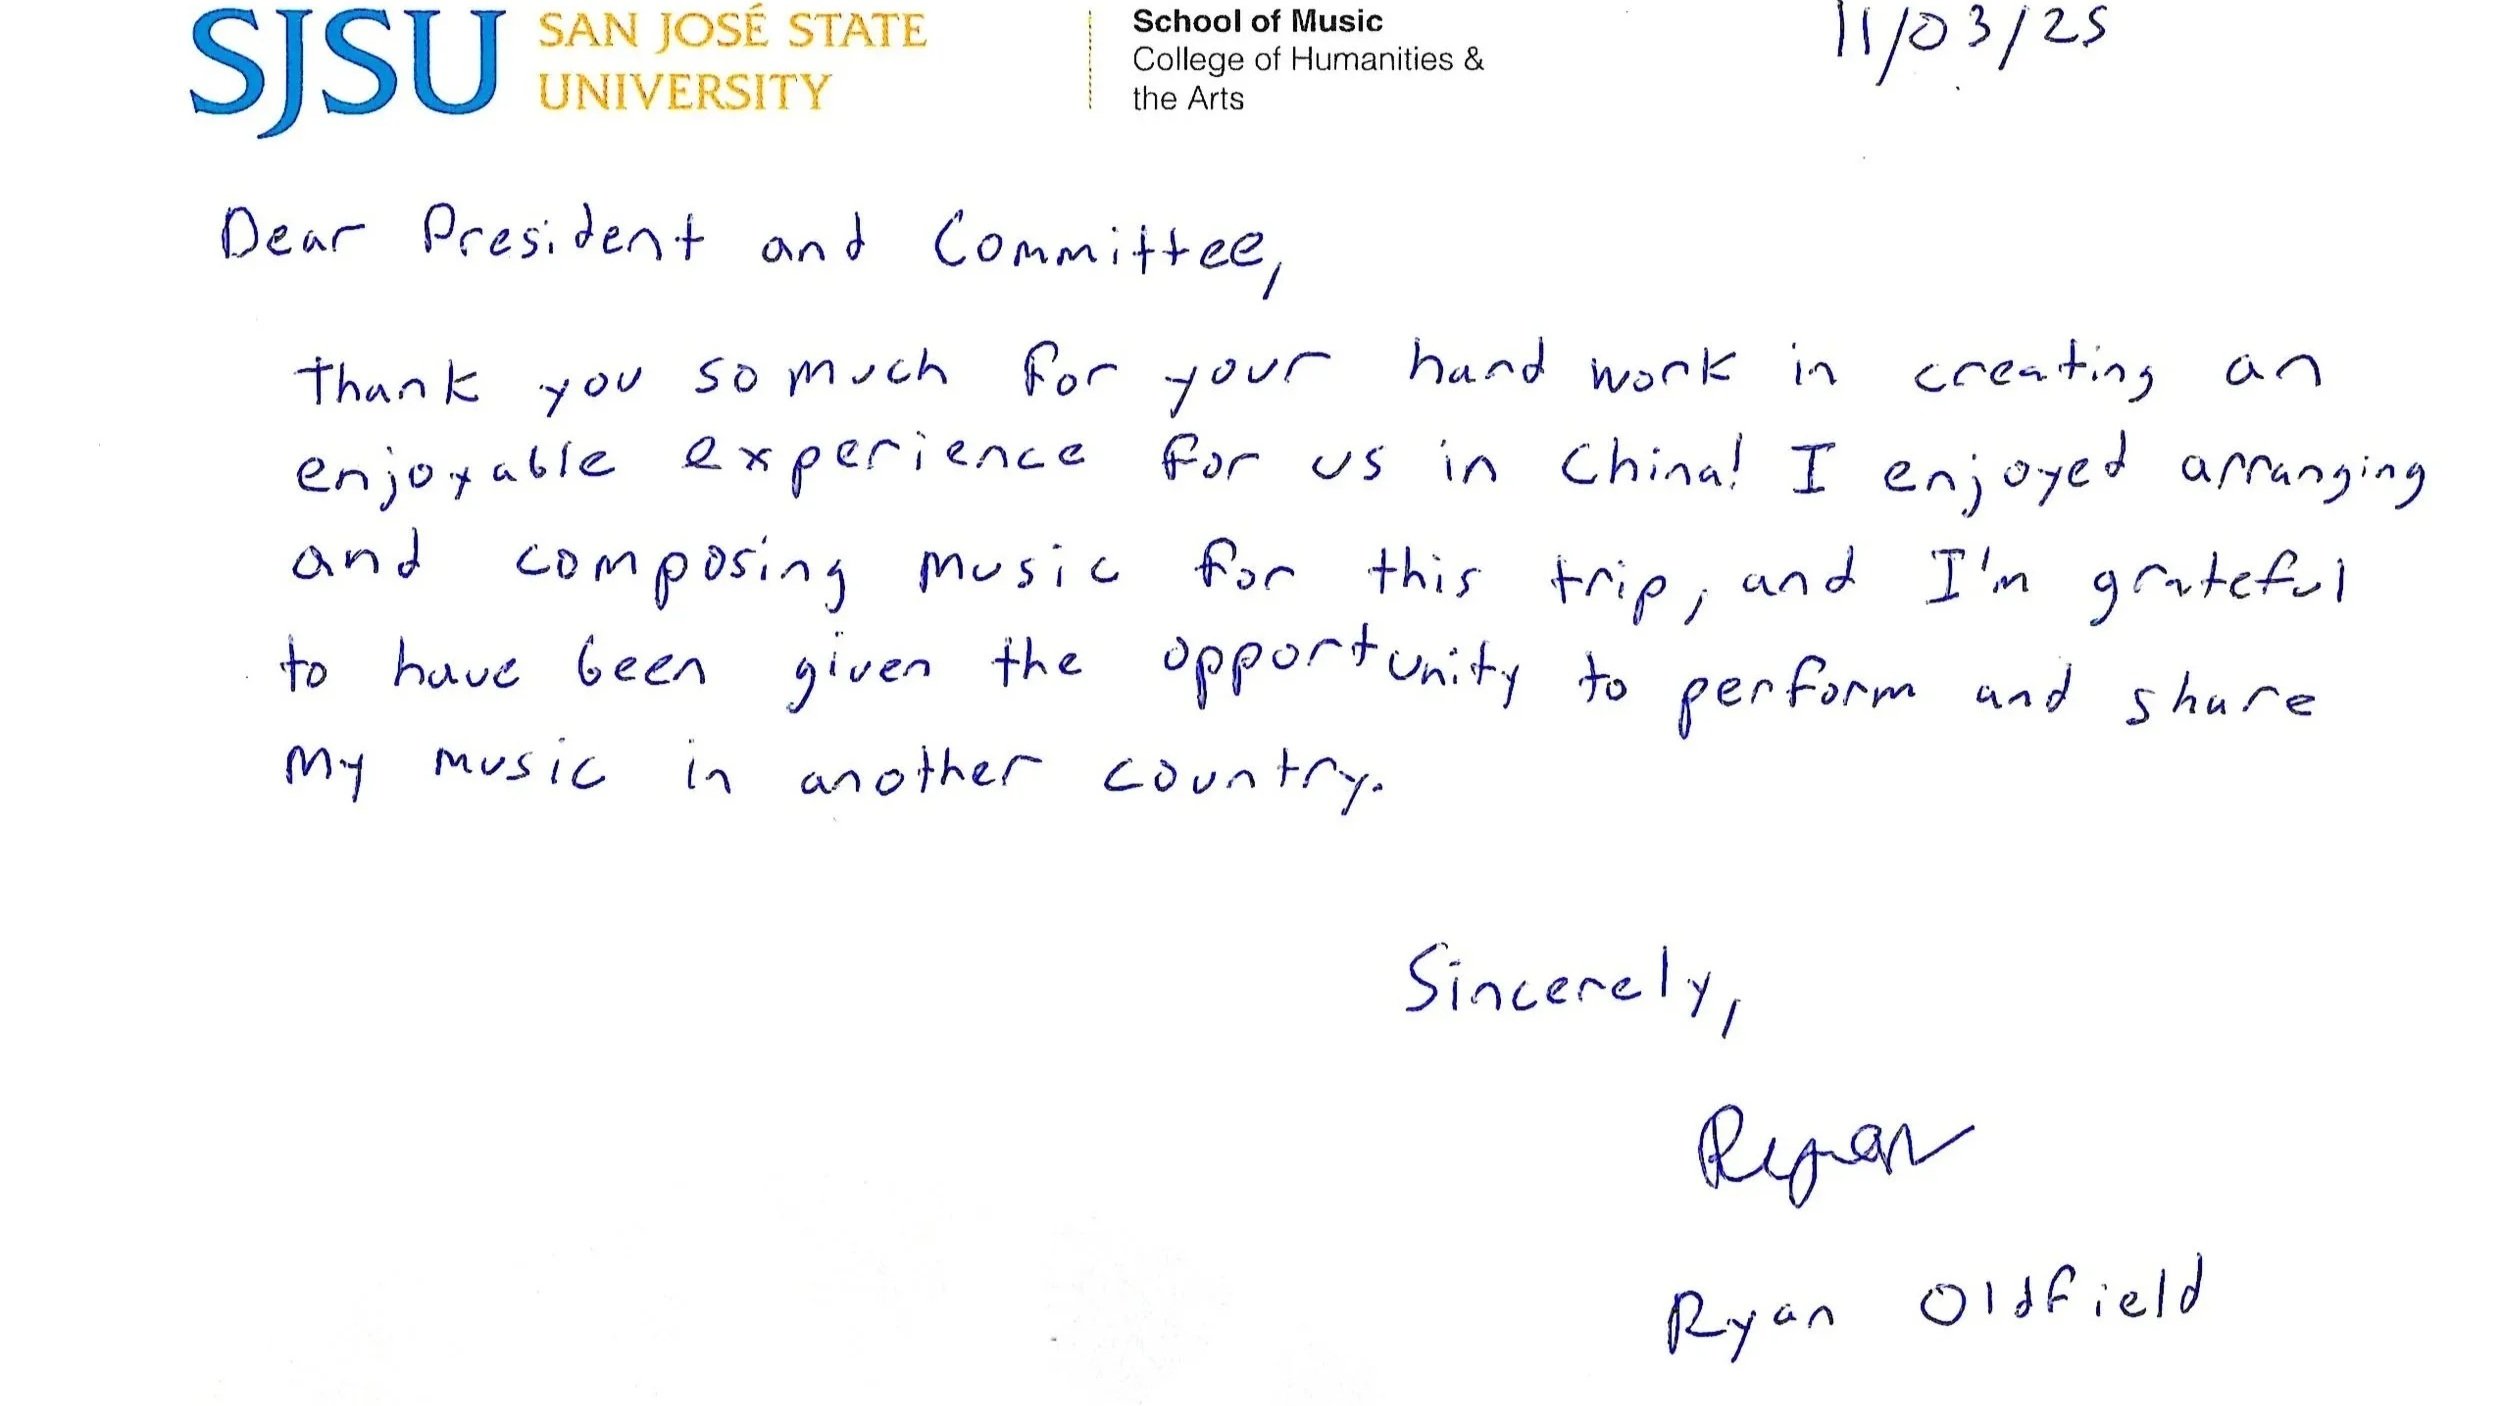 SJSU SAN JOSÉ STATE
UNIVERSITY
School of Music
College of Humanities &
the Arts
11/03/25
Dear President and Committee,
Thank you so much for your hard work in creating an
enjoyable experience for us in China! I enjoyed arranging
and composing music for this trip, and I'm grateful
to have been given the opportunity to perform and share
my music in another country.
Sincerely,
Ryan
Ryan Oldfield